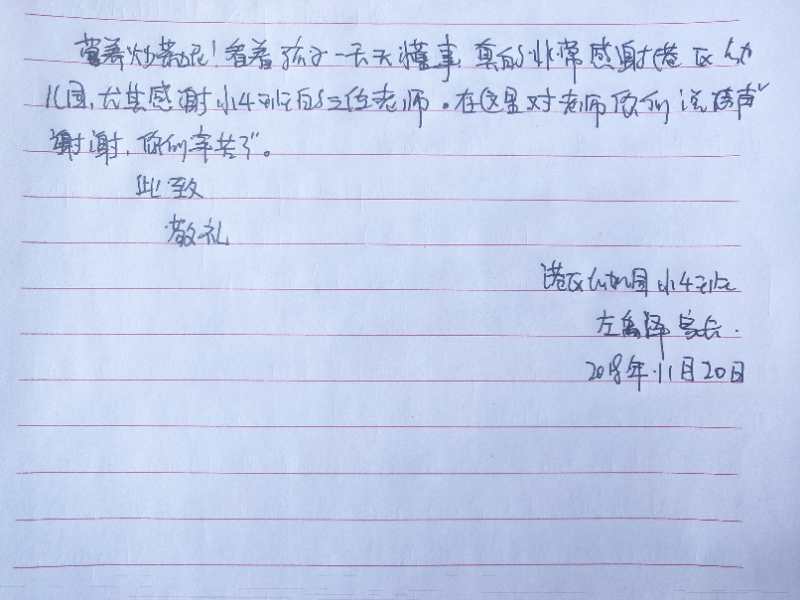 看着孩子一天天懂事,真的非常感谢港区幼
儿园,尤其感谢小4班的三位老师。在这里对老师你们说声"
谢谢,你们辛苦了"。
此致
敬礼
港区幼儿园小4班
左禹泽家长.
2018年11月20日